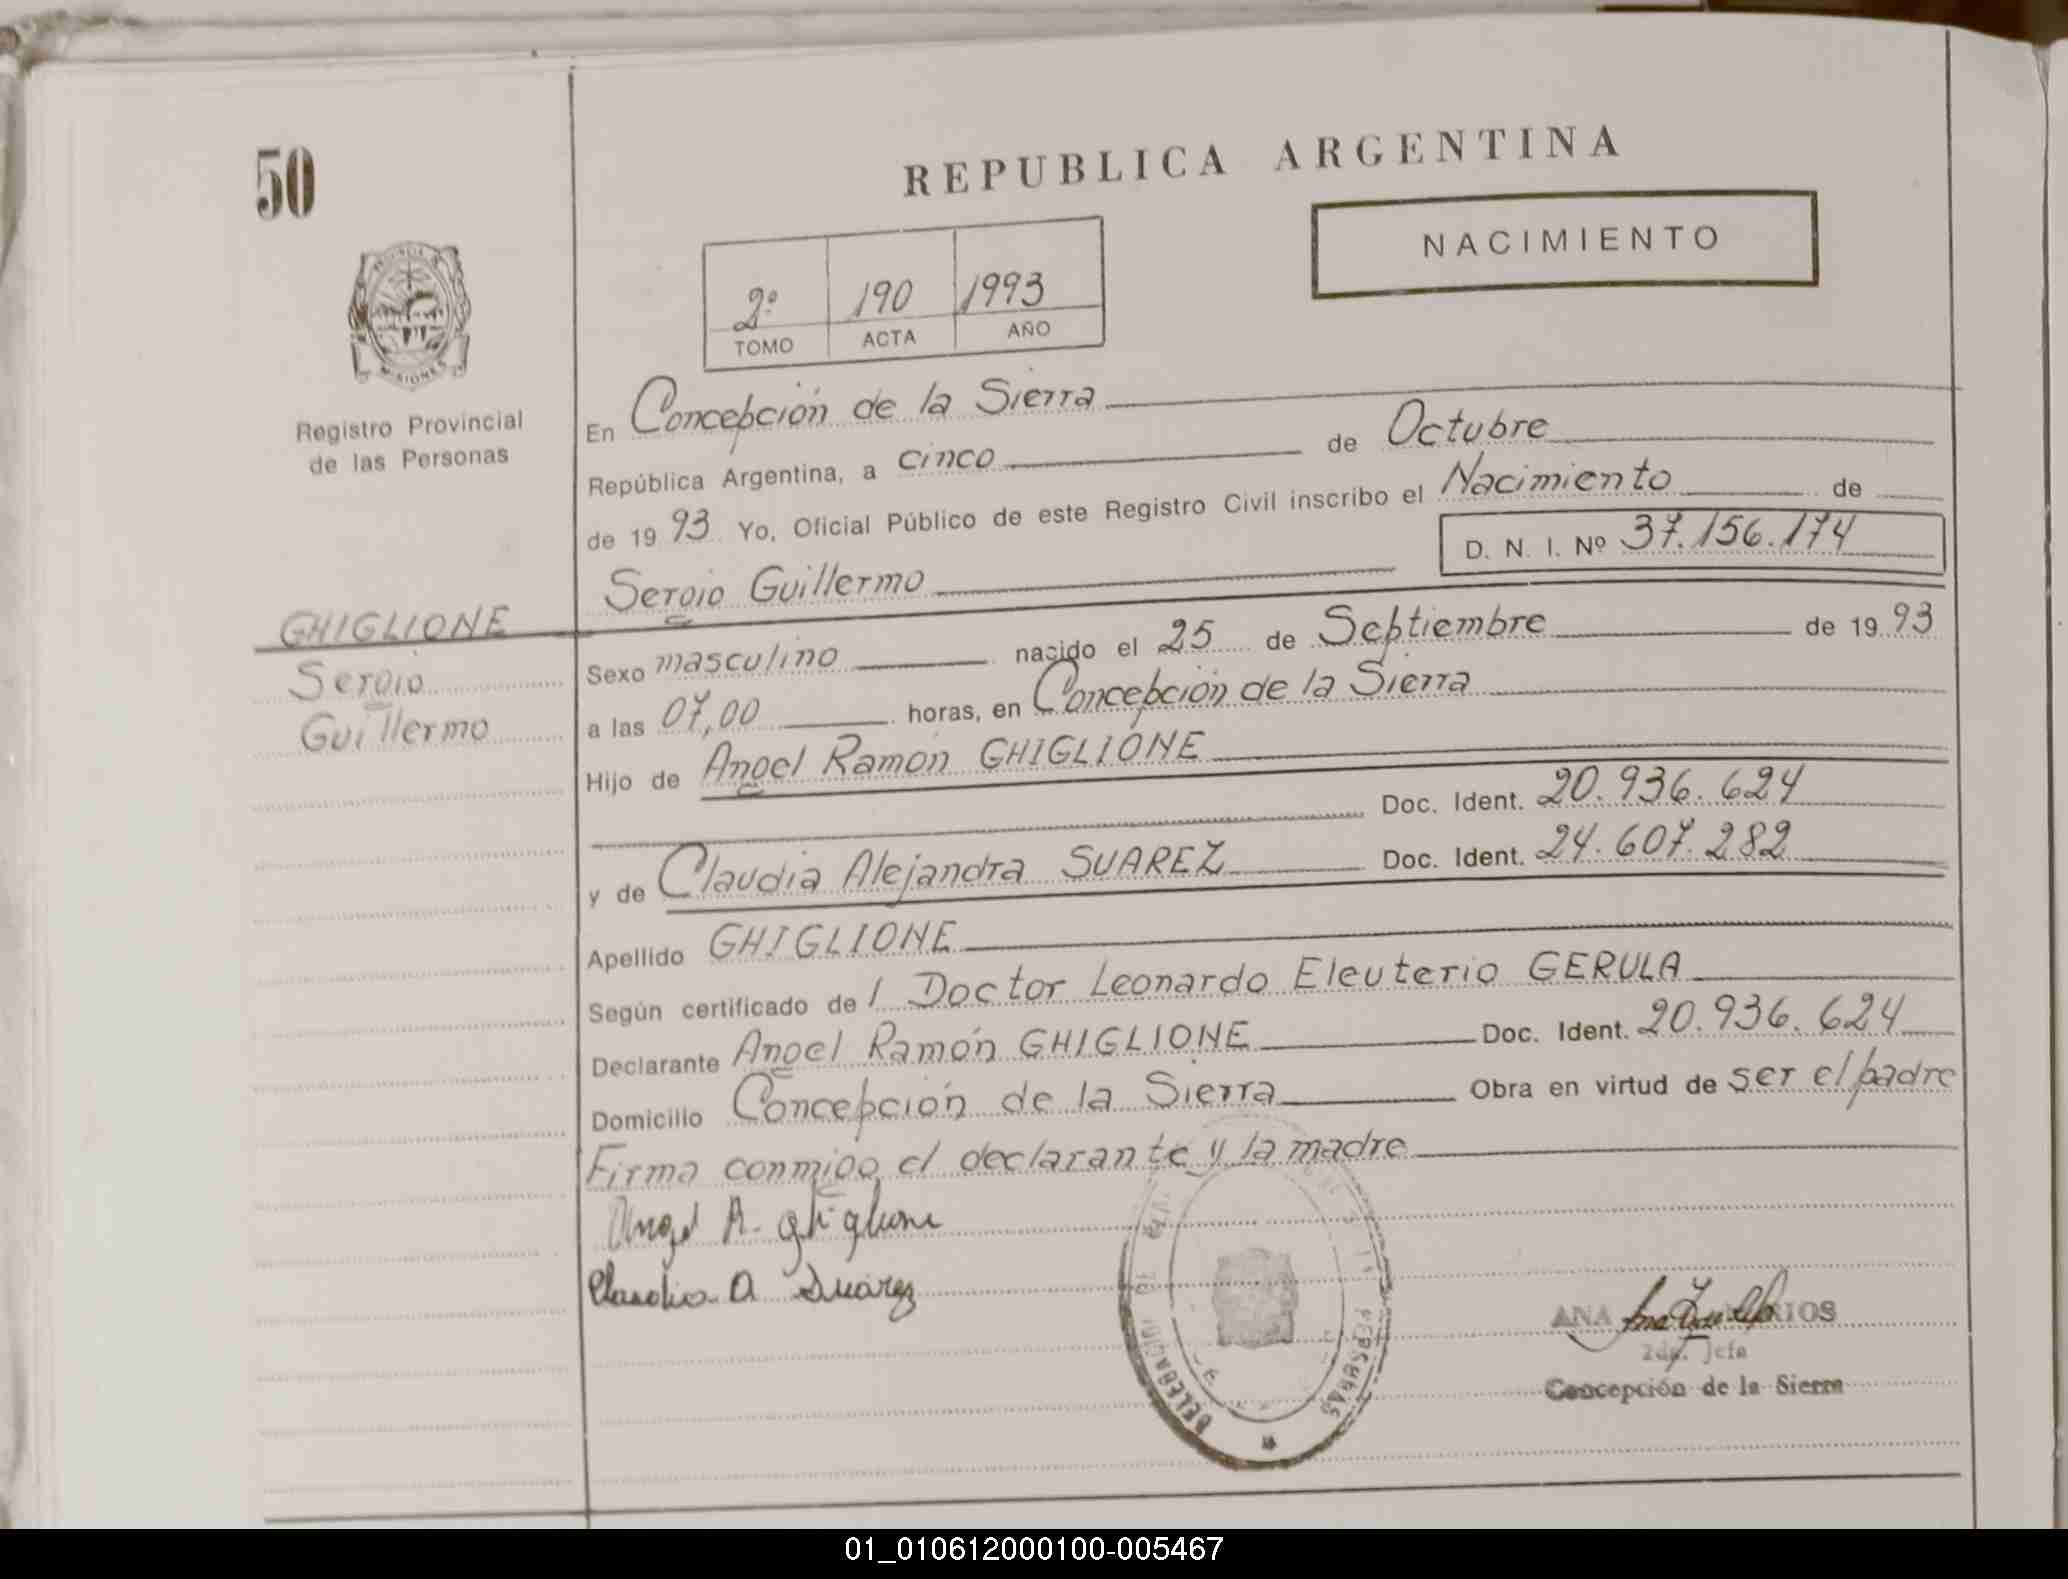 50
REPUBLICA ARGENTINA
NACIMIENTO
2º 190 1993
TOMO ACTA AÑO
MISIONES
Registro Provincial
de las Personas
En Concepción de la Sierra
República Argentina, a cinco de Octubre
de 19 93 Yo, Oficial Público de este Registro Civil inscribo el Nacimiento de
D. N. I. Nº 37.156.174
Sergio Guillermo
GHIGLIONE
Sergio
Guillermo
Sexo masculino nacido el 25 de Septiembre de 19 93
a las 07,00 horas, en Concepción de la Sierra
Hijo de Angel Ramón GHIGLIONE
Doc. Ident. 20.936.624
y de Claudia Alejandra SUAREZ Doc. Ident. 24.607.282
Apellido GHIGLIONE
Según certificado de l Doctor Leonardo Eleuterio GERULA
Declarante Angel Ramón GHIGLIONE Doc. Ident. 20.936.624
Domicilio Concepción de la Sierra Obra en virtud de ser el padre
Firma conmigo el declarante y la madre
Angel R. Ghiglione
Claudia A Suárez
DELEGACION
PERSONAS
ANA
Jefa
Concepción de la Sierra
01_010612000100-005467